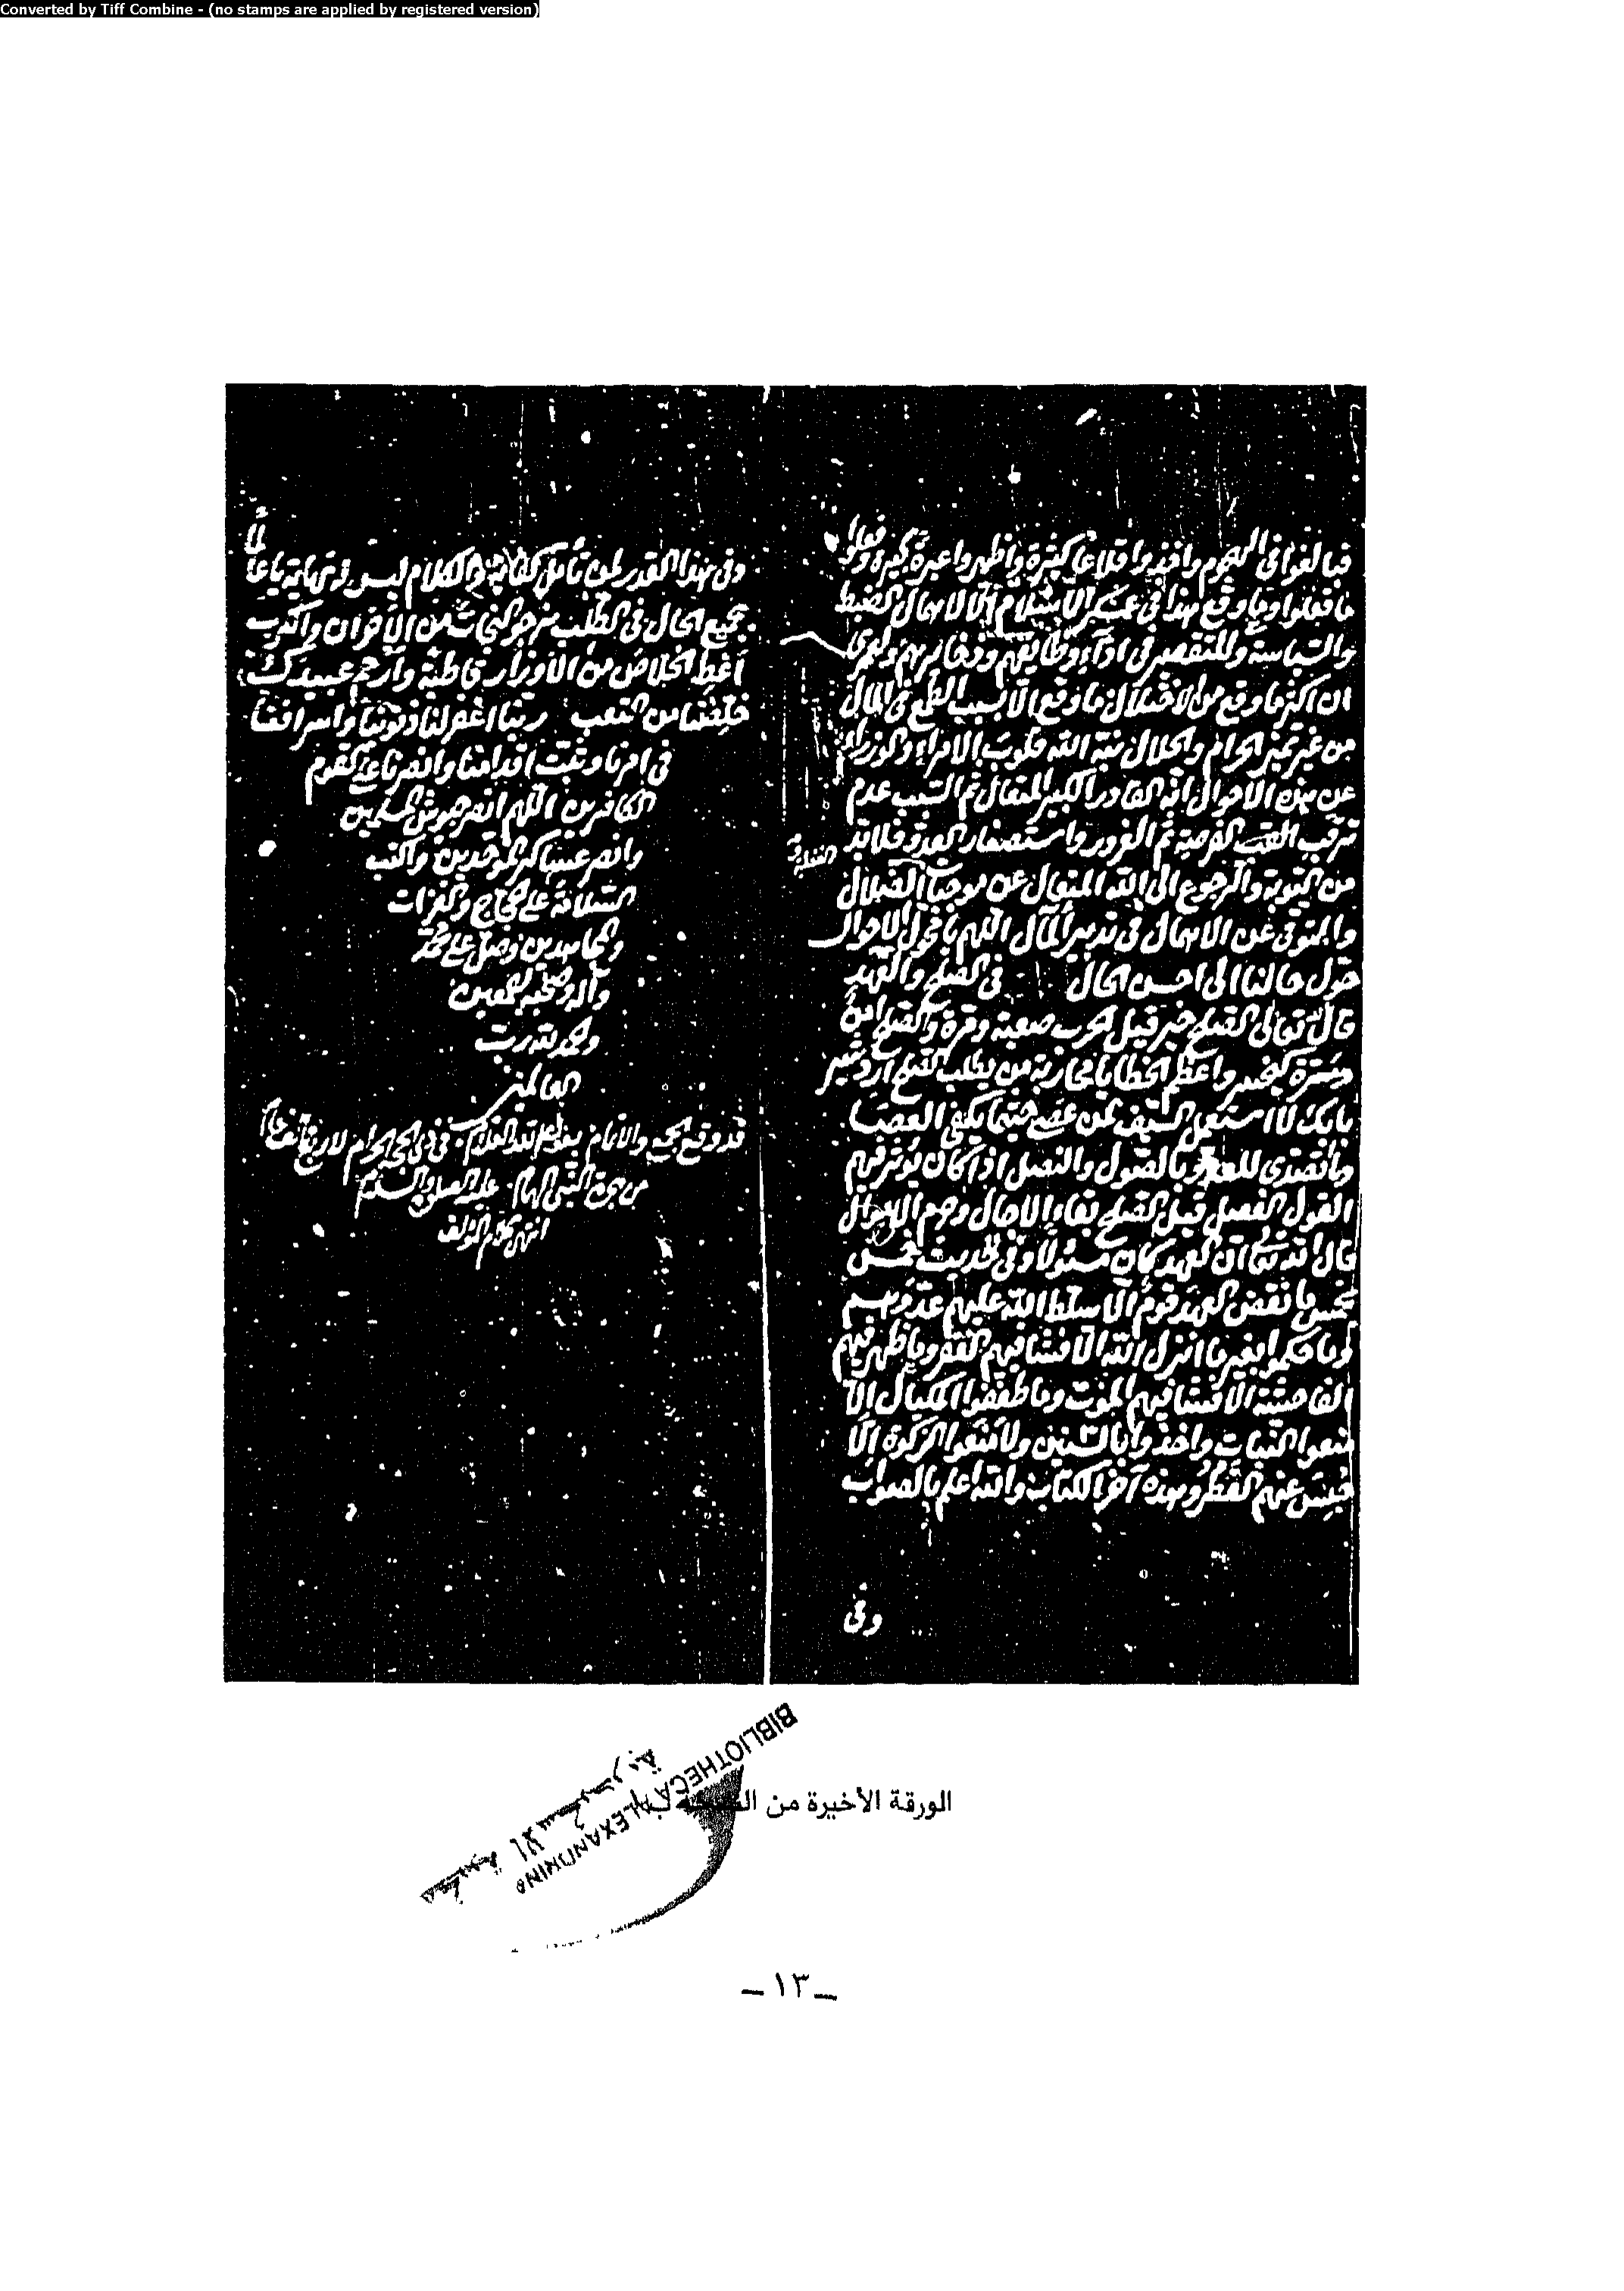 Converted by Tiff Combine - (no stamps are applied by registered version)
فبالغوا في الهجوم وافنوا قلاعا كثيرة واظهروا عبرة كبيرة وفعلوا
ما فعلوا وما وقع هذا في عسكر الاسلام الا لاهمال الضبط
والسياسة وللتقصير في اداء وظائفهم وذخائرهم
ان اكثر ما وقع من الاختلال ما وقع الا بسبب الطمع في المال
من غير تميز الحرام والحلال نبه الله قلوب الامراء والوزراء
عن هذه الاحوال انه القادر الكبير المتعال ثم السبب عدم
ترقب الفرصة ثم الغرور واستصغار العدو فلا بد
الغفلة
من التوبة والرجوع الى الله المتعال عن موجبات الضلال
والتوقي عن الاهمال في تدبير المآل اللهم يا محول الاحوال
حول حالنا الى احسن الحال في الصلح والعهد
قال تعالى الصلح خير قيل الحرب صعبة ومرة والصلح امن
ومسرة واعظم الخطايا محاربة من يطلب الصلح اردشير
بابك لا استعمل السيف حيثما يكفي العصا
وما تصدى للعدو بالصول والنصل اذا كان يؤثر فيهم
القول الفصل قيل الصلح بقاء الاجال
قال الله تعالى ان العهد كان مسئولا وفي الحديث خمس
بخمس ما نقض العهد قوم الا سلط الله عليهم عدوهم
وما حكموا بغير ما انزل الله الا فشا فيهم الفقر وما ظهر فيهم
الفاحشة الا فشا فيهم الموت وما طففوا المكيال الا
منعوا النبات واخذوا بالسنين ولا منعوا الزكوة الا
حبس عنهم القطر وهذه آخر الكتاب والله اعلم بالصواب
وفي
وفي هذا القدر لمن تأمل كفاية والكلام ليس له نهاية يا عالما
بجميع الحال في الطلب نرجو النجاة من الاحزان والكرب
اعط الخلاص من الاوزار قاطبة وارحم عبيدك
خلصنا من التعب ربنا اغفر لنا ذنوبنا واسرافنا
في امرنا وثبت اقدامنا وانصرنا على القوم
الكافرين اللهم انصر جيوش المسلمين
وانصر عساكر الموحدين واكتب
السلامة على الحجاج والغزات
والمجاهدين وصل على محمد
وآله وصحبه اجمعين
والحمد لله رب
العالمين
قد وقع والاتمام بعون الله العلام في ذي الحجة الحرام
من هجرة النبي الهمام عليه الصلوة والسلام
انتهى كلام المؤلف
الورقة الأخيرة من
BIBLIOTHECA ALEXANDRINA
مكتبة الاسكندرية
ـ ١٣ ـ